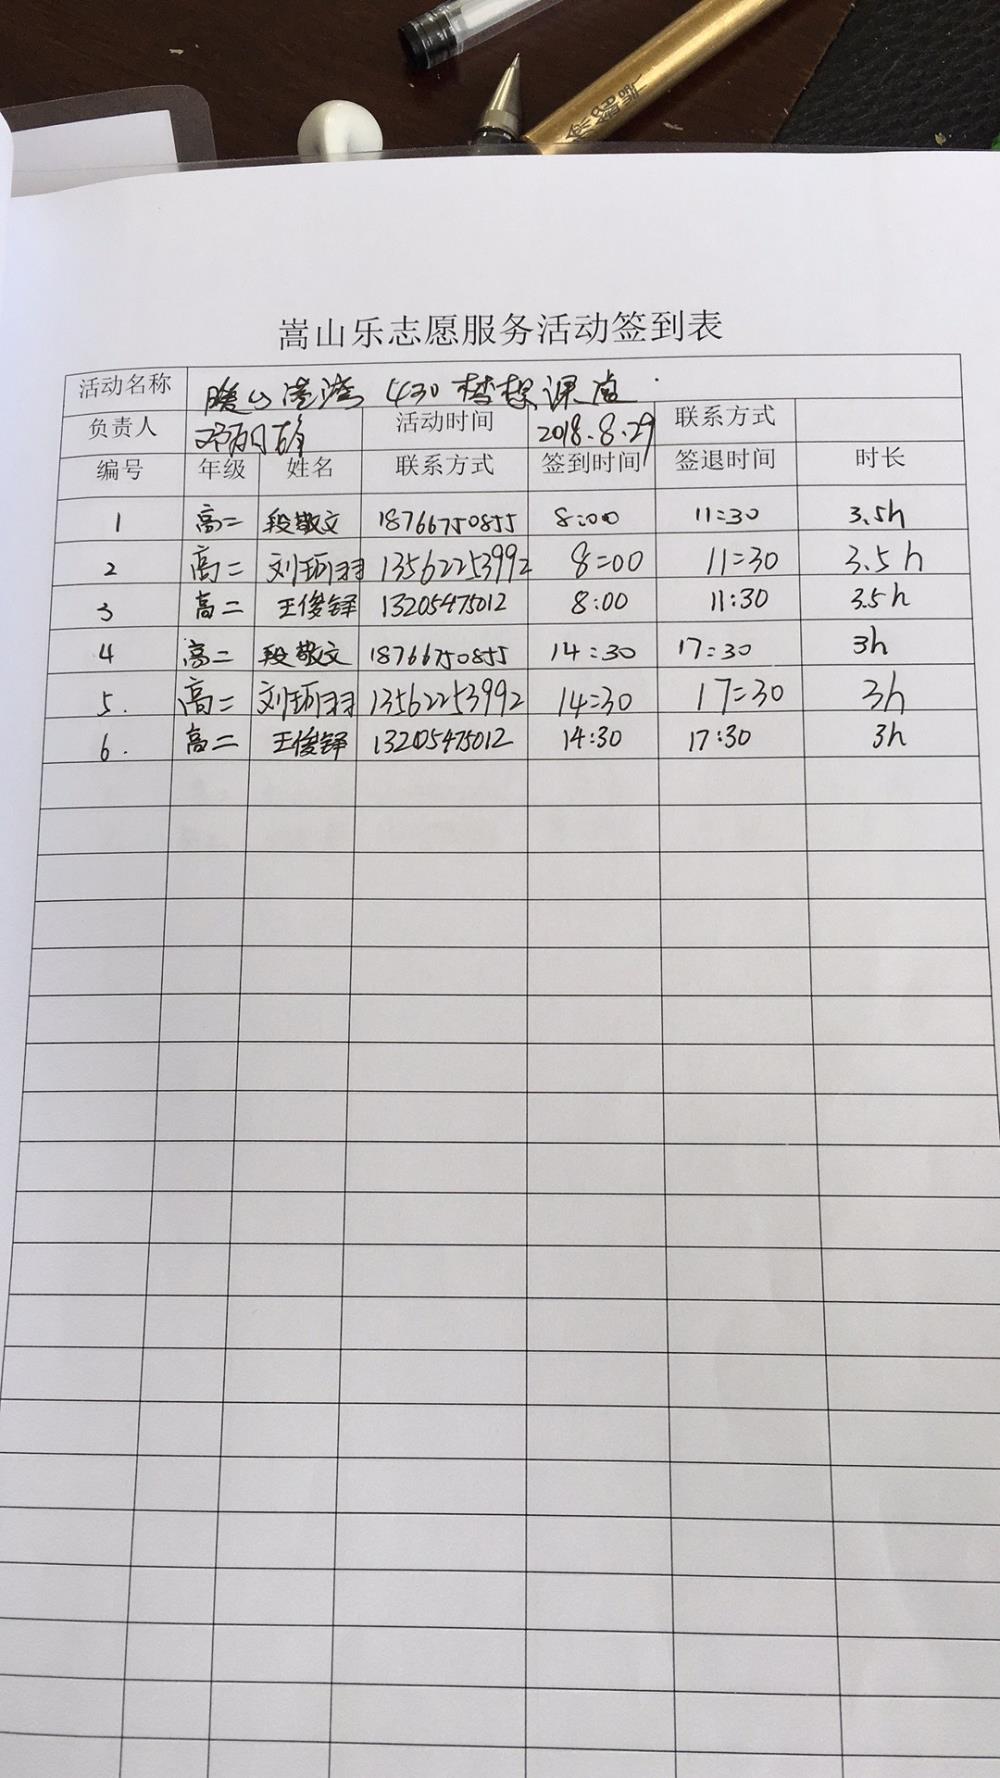 嵩山乐志愿服务活动签到表
活动名称 暖心港湾 430梦想课堂
负责人 活动时间 2018.8.29 联系方式
编号 年级 姓名 联系方式 签到时间 签退时间 时长
1 高二 段敬文 18766750855 8:00 11:30 3.5h
2 高二 刘珂羽 13562253992 8:00 11:30 3.5h
3 高二 王俊铎 13205475012 8:00 11:30 3.5h
4 高二 段敬文 18766750855 14:30 17:30 3h
5. 高二 刘珂羽 13562253992 14:30 17:30 3h
6. 高二 王俊铎 13205475012 14:30 17:30 3h